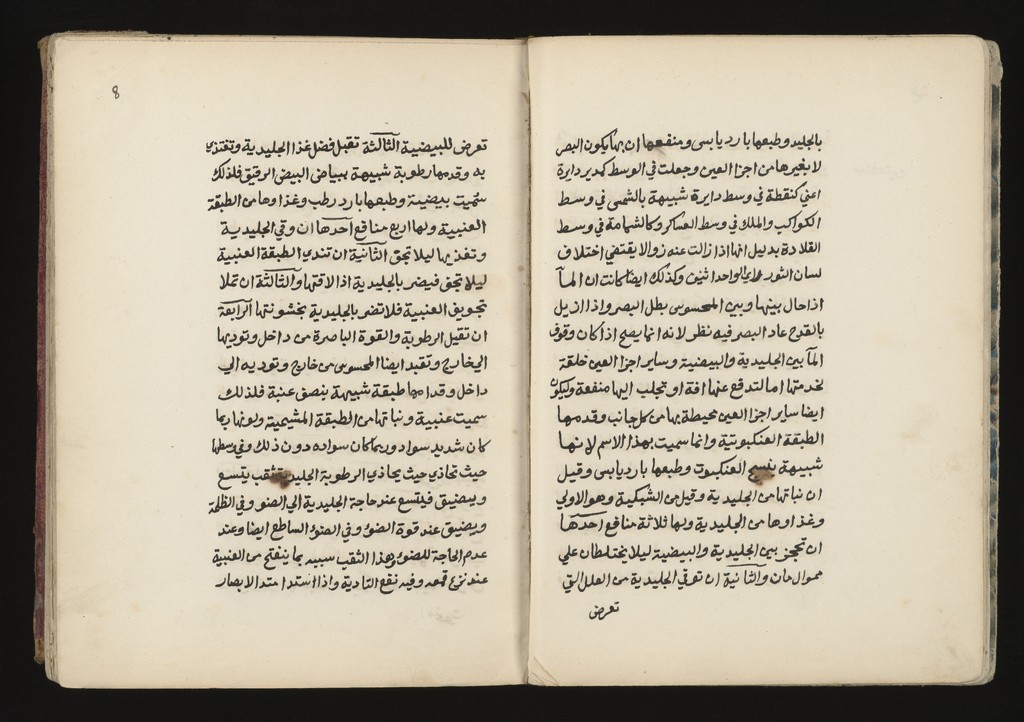 بالجليد وطبعها بارد يابس ومنفعها ان بها يكون البصر
لا بغيرها من اجزا العين وجعلت في الوسط كمدير دايرة
اعني كنقطة في وسط دايرة شبيهة بالشمس في وسط
الكواكب والملك في وسط العسكر وكالشمامة في وسط
القلادة بدليل انها اذا زالت عنه زوالا يقتضي اختلاف
لسان النور الواحد اثنين وكذلك ايضا كانت ان المآ
اذا حال بينها وبين المحسوس بطل البصر واذا ازيل
بالقدح عاد البصر فيه نظر لانه انما يصح اذا كان وقوف
المآ بين الجليدية والبيضية وساير اجزا العين خلقة
لخدمتها اما لتدفع عنها افة او تجلب اليها منفعة وليكون
ايضا ساير اجزا العين محيطة بها من كل جانب وقدمها
الطبقة العنكبوتية وانما سميت بهذا الاسم لانها
شبيهة بنسج العنكبوت وطبعها بارد يابس وقيل
ان نباتها من الجليدية وقيل من الشبكية وهو الاولي
وغذاوها من الجليدية ولها ثلاثة منافع احدها
ان تحجز بين الجليدية والبيضية ليلا يختلطان علي
والثانية ان توقي الجليدية من العلل التي
تعرض
8
تعرض للبيضية الثالثة تقبل فضل غذا الجليدية وتغتذي
به وقدمها رطوبة شبيهة ببياض البيض الرقيق فلذلك
سُميت بيضية وطبعها بارد رطب وغذاوها من الطبقة
العنبية ولها اربع منافع احدها ان وقي الجليدية
وتغذيها ليلا تجف الثانية ان تندي الطبقة العنبية
ليلا تجف فيضر بالجليدية اذا لاقتها والثالثة ان تملا
تجويف العنبية فلا تضر بالجليدية بخشونتها الرابعة
ان تقبل الرطوبة والقوة الباصرة من داخل وتوديها
الي خارج وتقبد ايضا المحسوس من خارج وتوديه الي
داخل وقدامها طبقة شبيهة بنصف عنبة فلذلك
سميت عنبية ونباتها من الطبقة المشيمية ولونها ربما
كان شديد سواد وربما كان سواده دون ذلك وفي وسطها
حيث تحاذي حيث يحاذي الرطوبة الجليدية ثقب يتسع
ويضيق فيتسع عند حاجة الجليدية الي الضو وفي الظلمة
ويضيق عند قوة الضوء وفي الضوء الساطع ايضا وعند
عدم الحاجة للضوء وهذا الثقب سببه بما ينفتح من العنبية
عند نزع قمعه وفيه نقع التادية واذا استد امتد الابصار